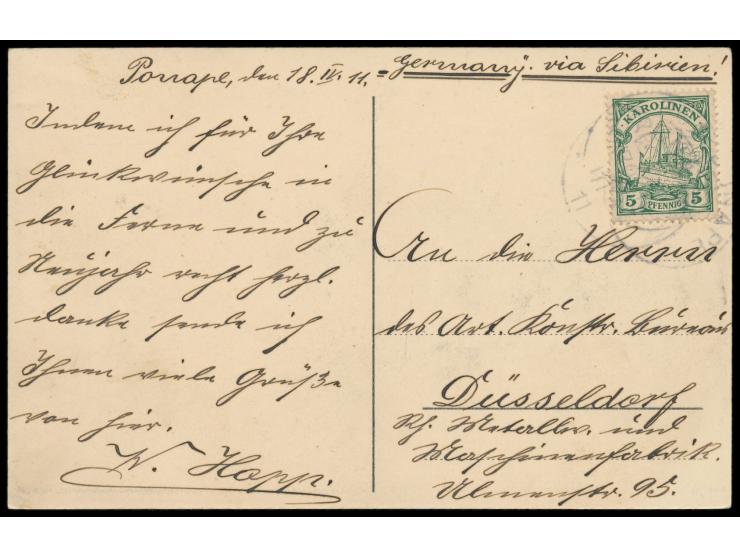 Ponape, den 18. IV. 11.
Germany. via Sibirien!
Indem ich für Ihre
Glückwünsche in
die Ferne und zu
Neujahr recht herzl.
danke sende ich
Ihnen viele Grüße
von hier.
W. Hopp.
KAROLINEN
5 PFENNIG 5
An die Herren
des Art. Konstr. Bureaus
Düsseldorf
Rh. Metallw. und
Maschinenfabrik.
Ulmenstr. 95.